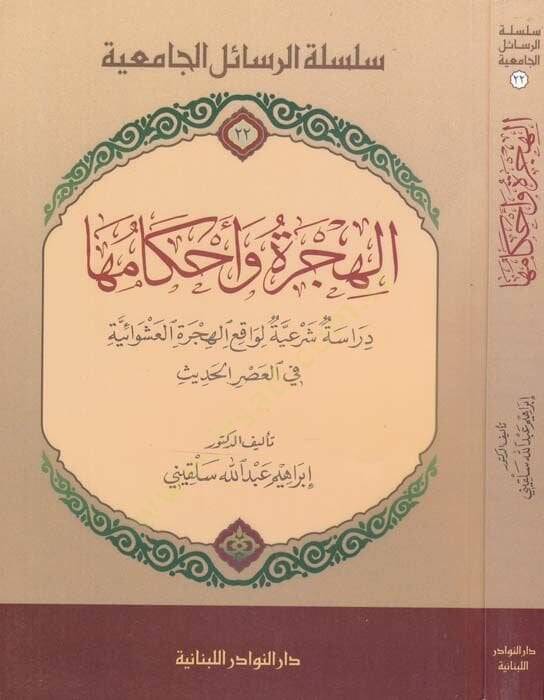 سلسلة الرسائل الجامعية
٢٢
الهِجْرَةُ وَأَحْكَامُهَا
دِرَاسَةٌ شَرْعِيَّةٌ لِوَاقِعِ الهِجْرَةِ العَشْوَائِيَّةِ
فِي العَصْرِ الحَدِيثِ
تأليف الدكتور
إبراهيم عبد الله سلقيني
دار النوادر اللبنانية
سلسلة
الرسائل
الجامعية
٢٢
الهِجْرَةُ وَأَحْكَامُهَا
تأليف الدكتور
إبراهيم عبد الله سلقيني
دار النوادر
اللبنانية